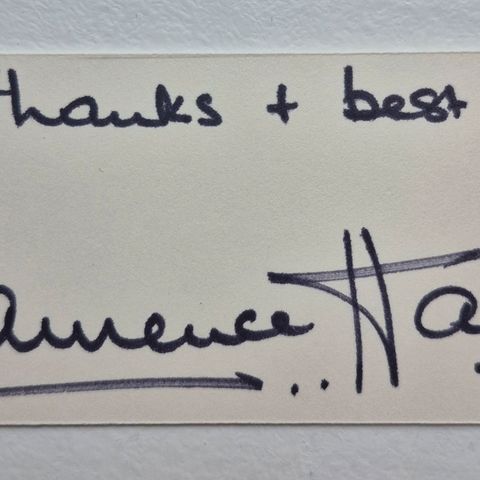 thanks + best
aurence Ha